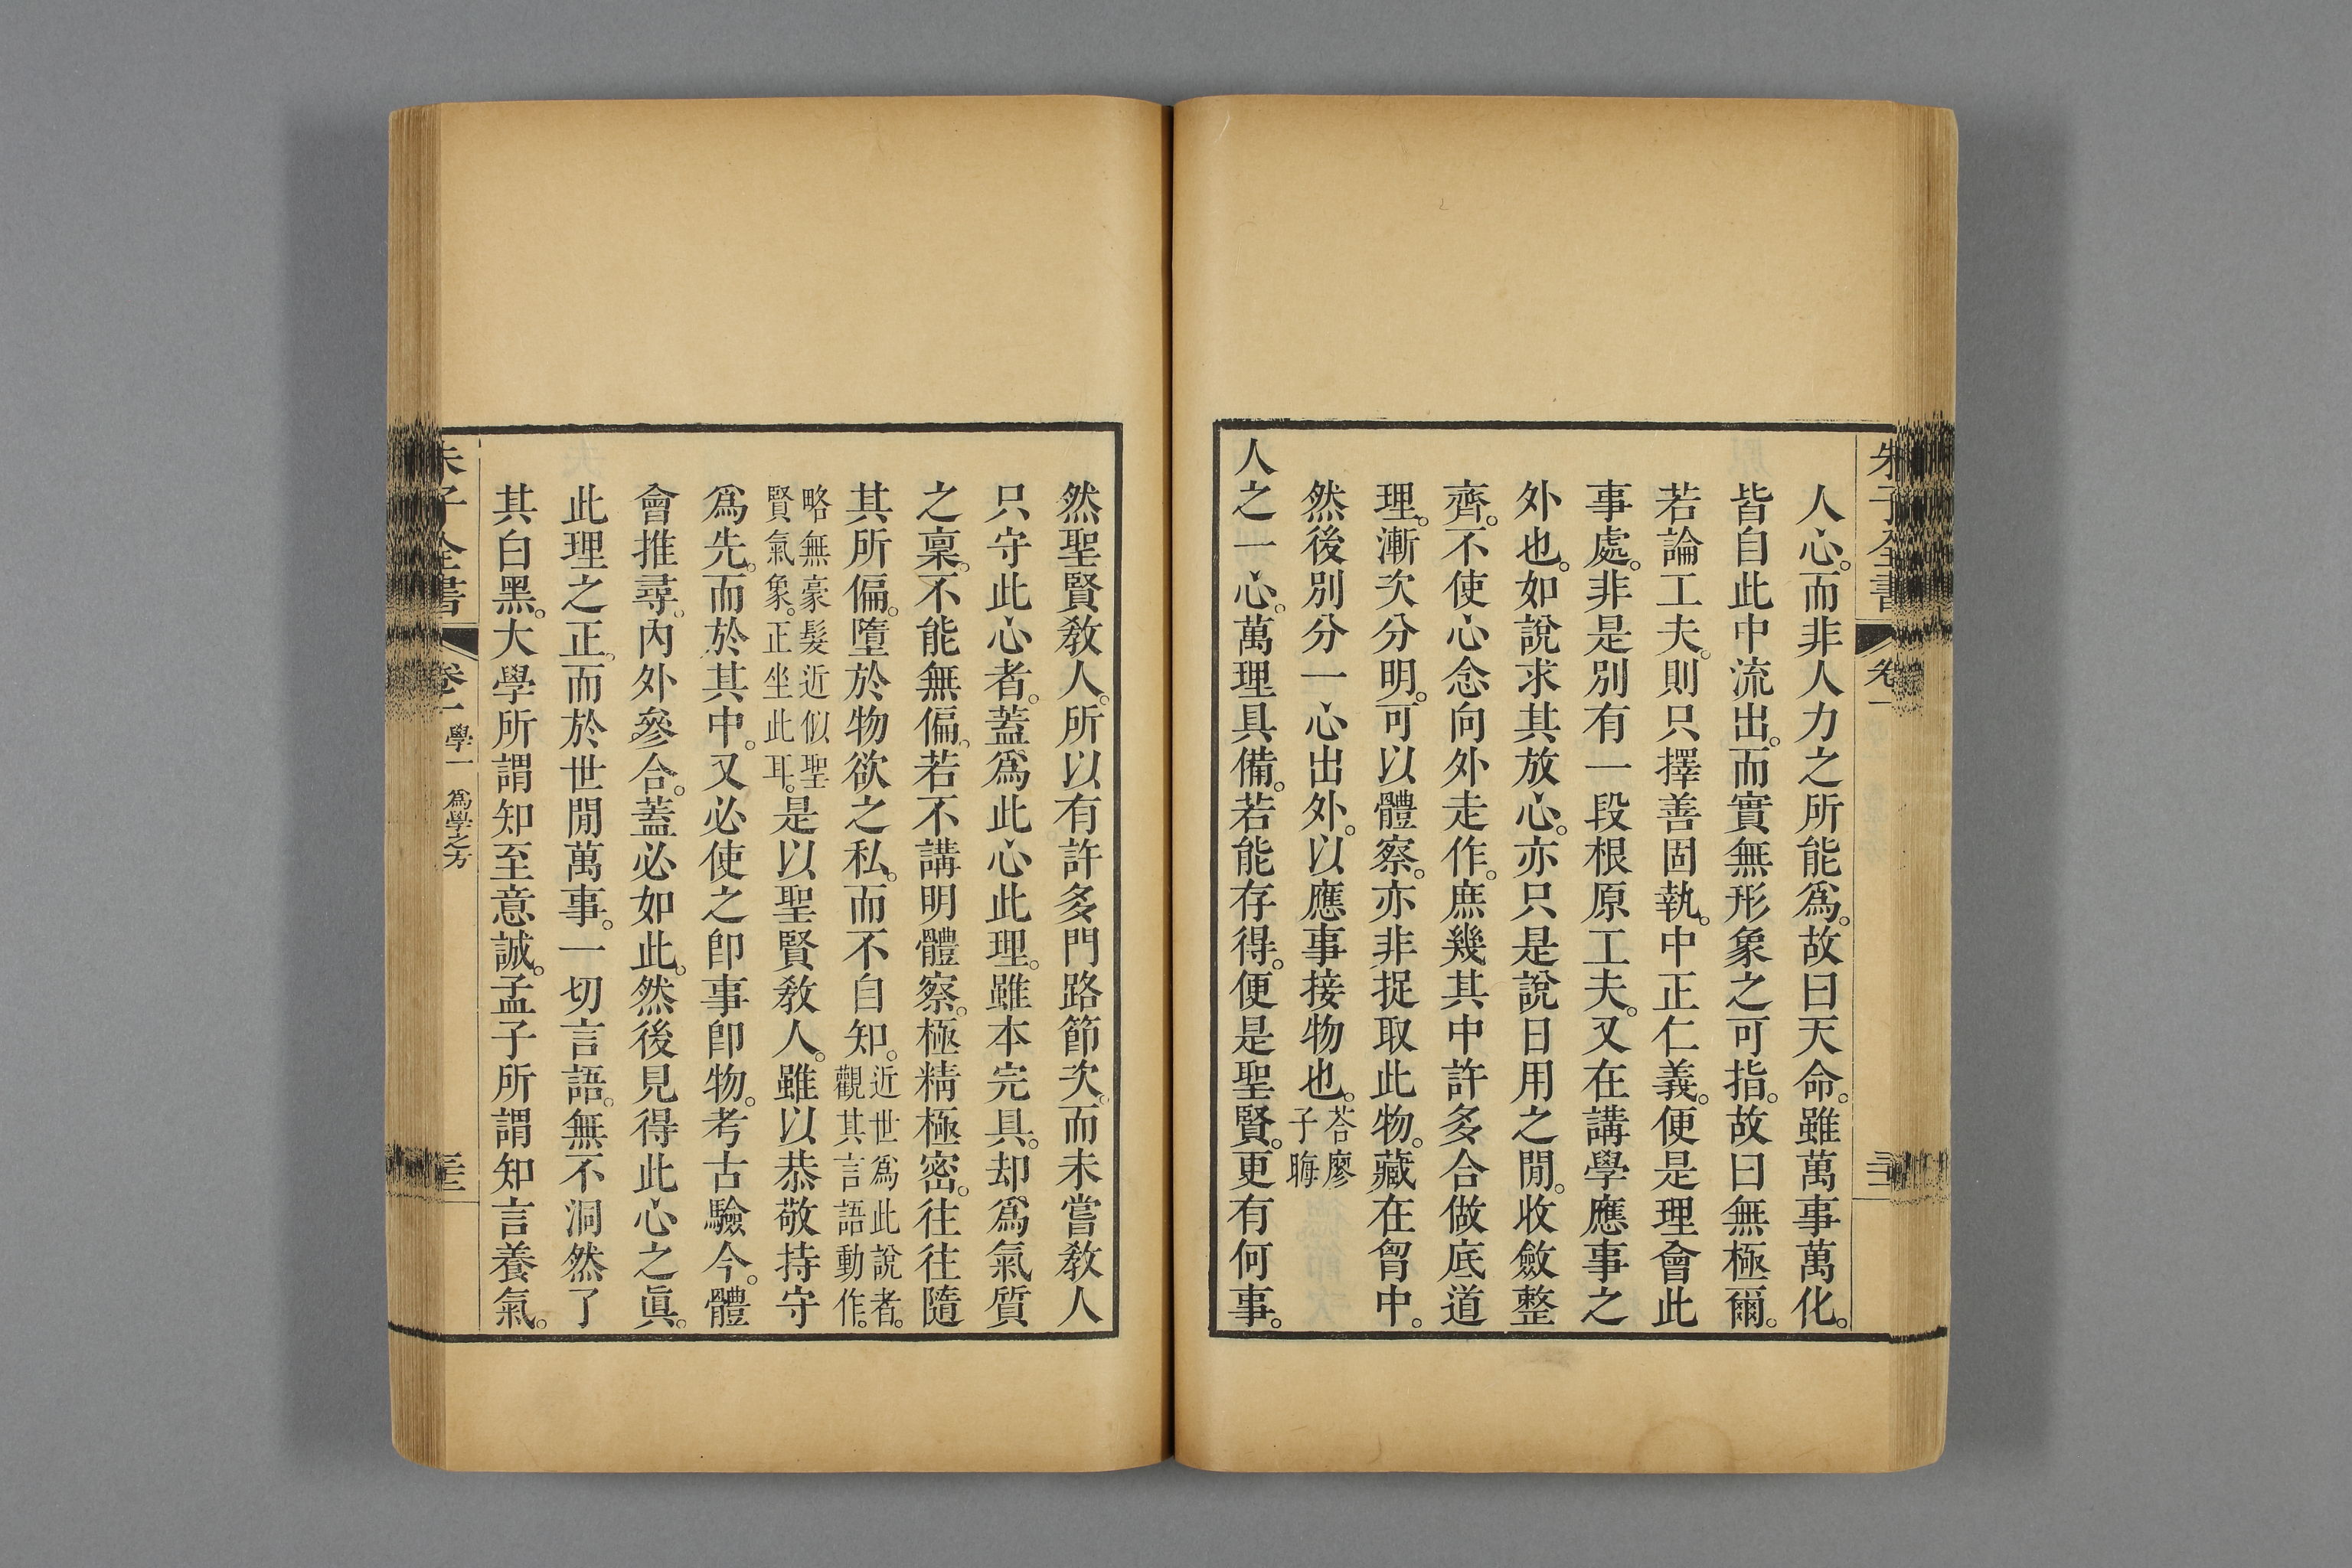 人心。而非人力之所能爲。故曰天命。雖萬事萬化。
皆自此中流出。而實無形象之可指。故曰無極爾。
若論工夫。則只擇善固執。中正仁義。便是理會此
事處。非是別有一段根原工夫。又在講學應事之
外也。如說求其放心。亦只是說日用之閒。收斂整
齊。不使心念向外走作。庶幾其中許多合做底道
理。漸次分明。可以體察。亦非捉取此物。藏在胷中。
然後別分一心出外。以應事接物也。荅廖子晦
人之一心。萬理具備。若能存得。便是聖賢。更有何事。
然聖賢敎人。所以有許多門路節次。而未嘗敎人
只守此心者。蓋爲此心此理。雖本完具。却爲氣質
之稟。不能無偏。若不講明體察。極精極密。往往隨
其所偏。墮於物欲之私。而不自知。近世爲此說者。觀其言語動作。
略無豪髮近似聖賢氣象。正坐此耳。是以聖賢敎人。雖以恭敬持守
爲先。而於其中。又必使之卽事卽物。考古驗今。體
會推尋。內外參合。蓋必如此。然後見得此心之眞。
此理之正。而於世閒萬事。一切言語。無不洞然了
其白黑。大學所謂知至意誠。孟子所謂知言養氣。
朱子全書
卷一 學一 爲學之方